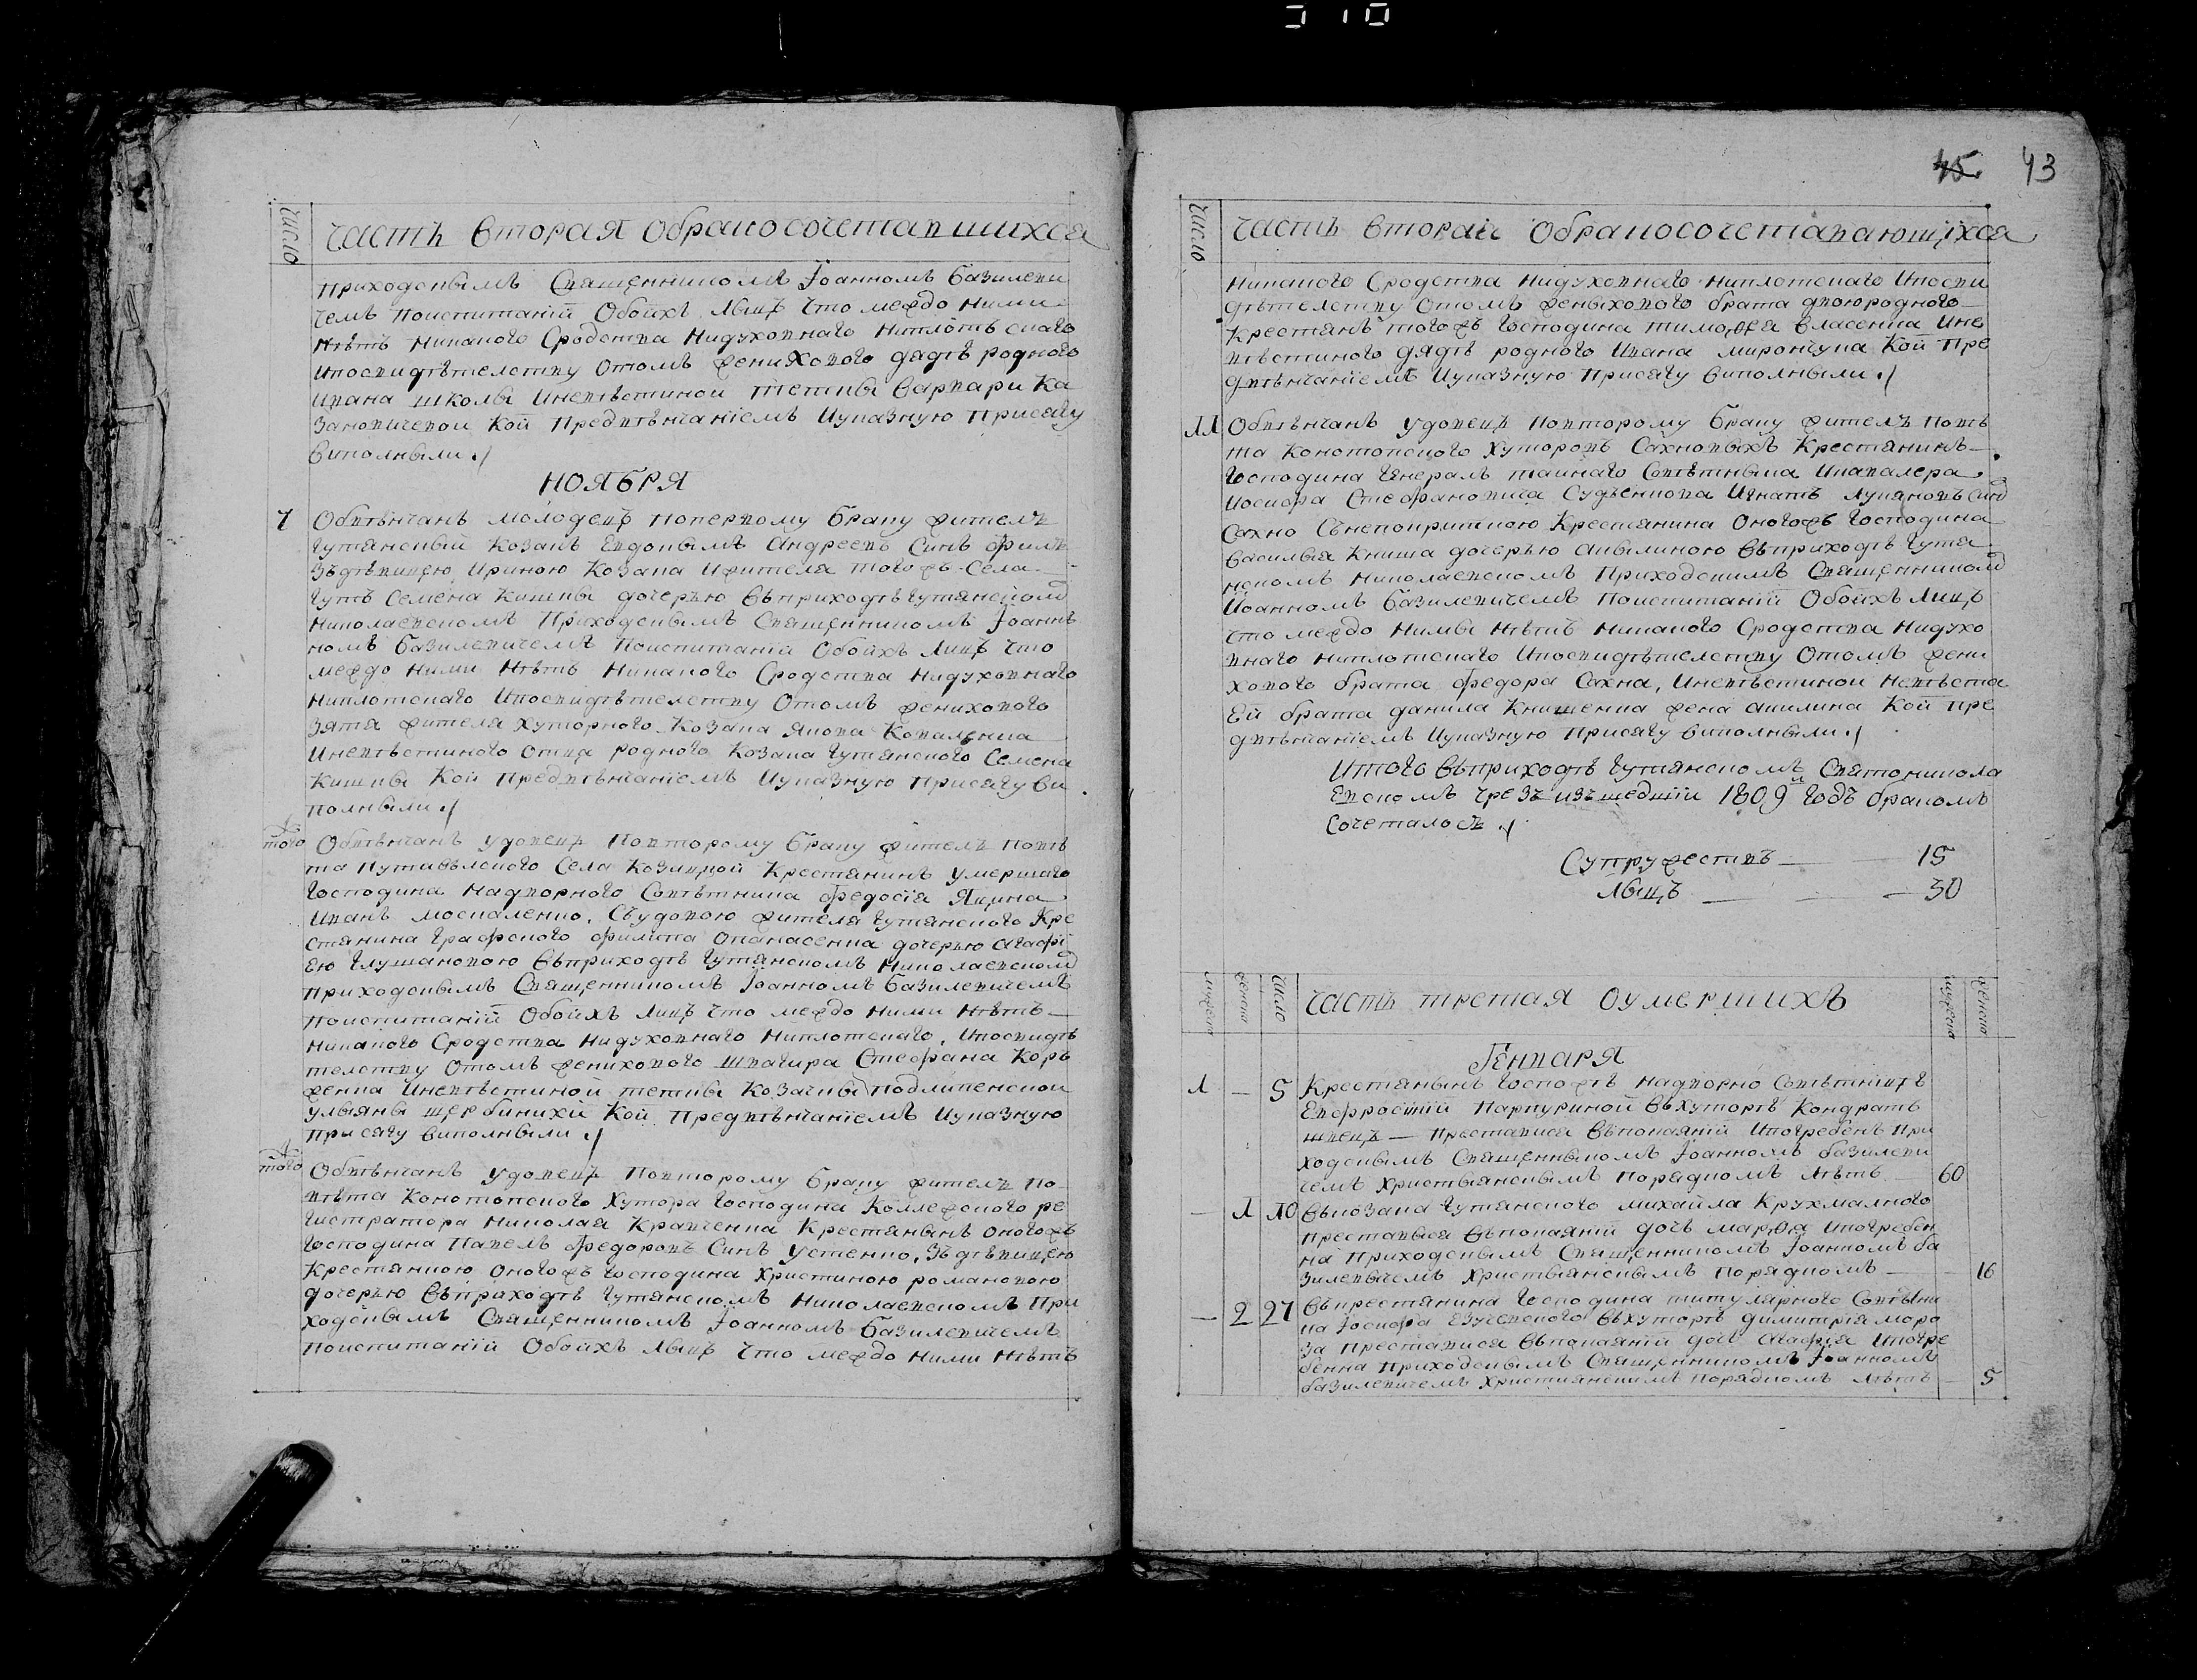 45. 43
Число
Часть вторая обракосочетавшихся
приходскимъ Священникомъ Іоанномъ Базилеви
чемъ поиспитаній обойхъ лицъ что между ними
нѣтъ никакого сродства нидуховнаго ниплотскаго
ипосвидѣтелству отомъ женихового дядѣ родного
ивана школы иневѣстиной тетки варвари ка
зановичевой кой предвѣнчаніемъ иуказную присягу
виполныли ./
НОЯБРЯ
7 Обвѣнчанъ молодецъ поперъвому браку жителъ
гутянскый козакъ Евдокымъ Андреевъ Синъ
зъдѣвицею ириною козака ижителя тогожъ села
гутъ Семена Кишкы дочерью въприходѣ гутянскомъ
николаевскомъ приходскымъ Священникомъ Іоаннъ
номъ Базилевичемъ поиспитаній обойхъ лицъ что
между ними нѣтъ никакого сродства нидуховнаго
ниплотскаго ипосвидѣтелству отомъ женихового
зятя жителя хуторного козака якова коваленка
иневѣстиного отца родного козака гутянского Семена
Кишкы кой предвѣнчаніемъ иуказную присягу ви
полныли ./
того Обвѣнчанъ удовецъ повторому браку жителъ повѣ
та путивлского села козацкой крестянинъ умершаго
господина надворного Совѣтника федосія Яцина
иванъ москаленко, съудовою жителя гутянского кре
стянина графского филипа опанасенка дочерью агафі
ею глушаковою въприходѣ гутянскомъ николаевскомъ
приходскымъ Священникомъ Іоанномъ Базилевичемъ
поиспитаній обойхъ лицъ что между ними нѣтъ
никакого сродства нидуховнаго ниплотскаго, ипосвидѣ
телству отомъ женихового швагира Стефана корь
женка иневѣстиной тетки козачкы подлипенской
ульяны щербинихи кой предвѣнчаніемъ иуказную
присягу виполныли ./
того Обвѣнчанъ удовецъ повторому браку жителъ по
вѣта конотопского хутора господина коллежского ре
гистратора николая кравченка крестянынъ оногожъ
господина павелъ федоровъ Синъ устенко, зъдѣвицею
крестянкою оногожъ господина христиною романовою
дочерью въприходѣ гутянскомъ николаевскомъ при
ходскымъ Священникомъ Іоанномъ Базилевичемъ
поиспитаній обойхъ лицъ что между ними нѣтъ
Число
Часть вторая обракосочетавающихся
никакого сродства нидуховнаго ниплотскаго ипосви
дѣтелству отомъ женыхового брата двоюродного
крестянъ тогожъ господина тимофея власенка ине
вѣстиного дядѣ родного ивана миронъчука кой пре
двѣнчаніемъ иуказную присягу виполныли ./
11 Обвѣнчанъ удовецъ повторому браку жителъ повѣ
та конотопского хуторовъ Сахновыхъ крестянинъ
господина генералъ тайнаго Совѣтныка икавалера
иосифа Стефановича Судъенкова игнатъ лукяновъ Синъ
Сахно съневоприткою крестянина оногожъ господина
василья книша дочерью акылиною въприходѣ гутя
нскомъ николаевскомъ приходскимъ Священникомъ
Іоанномъ Базилевичемъ поиспитаній обойхъ лицъ
что между нимы нѣтъ никакого сродства нидухо
внаго ниплотскаго ипосвидѣтелству отомъ жени
хового брата федора Сахна, иневѣстиной невѣстка
ей брата данила книшенка жена акилина кой пре
двѣнчаніемъ иуказную присягу виполныли ./
Итого въприходѣ гутянскомъ Святоникола
евскомъ чрезъ изъшедшій 1809й годъ бракомъ
сочеталось ./
Супружествъ — 15
Лыцъ — 30
мужеска женска Число
Часть третая оумершихъ
мужеска женска
Генваря
1 — 5 Крестянынъ госпожѣ надворно Совѣтницѣ
Евфросиній паркуриной въхуторѣ кондратъ
швецъ — преставися въпокаяній ипогребенъ при
ходскымъ Священныкомъ Іоанномъ базилеви
чемъ христыянскымъ порядкомъ лѣтъ — 60
— 1 10 въкозака гутянского михайла крухмалного
преставыся въпокаяній дочъ марфа ипогребен
на приходскымъ Священникомъ Іоанномъ ба
зилевычемъ христыянскымъ порядкомъ — 16
— 2 27 въкрестянина господина титулярного Совѣтни
ка Іосифа езучевского въхуторѣ димитрія моро
за преставися въпокаяній дочъ агафія ипогре
бенна приходскымъ Священникомъ Іоанномъ
базилевичемъ християнскимъ порядкомъ лѣтъ — 5